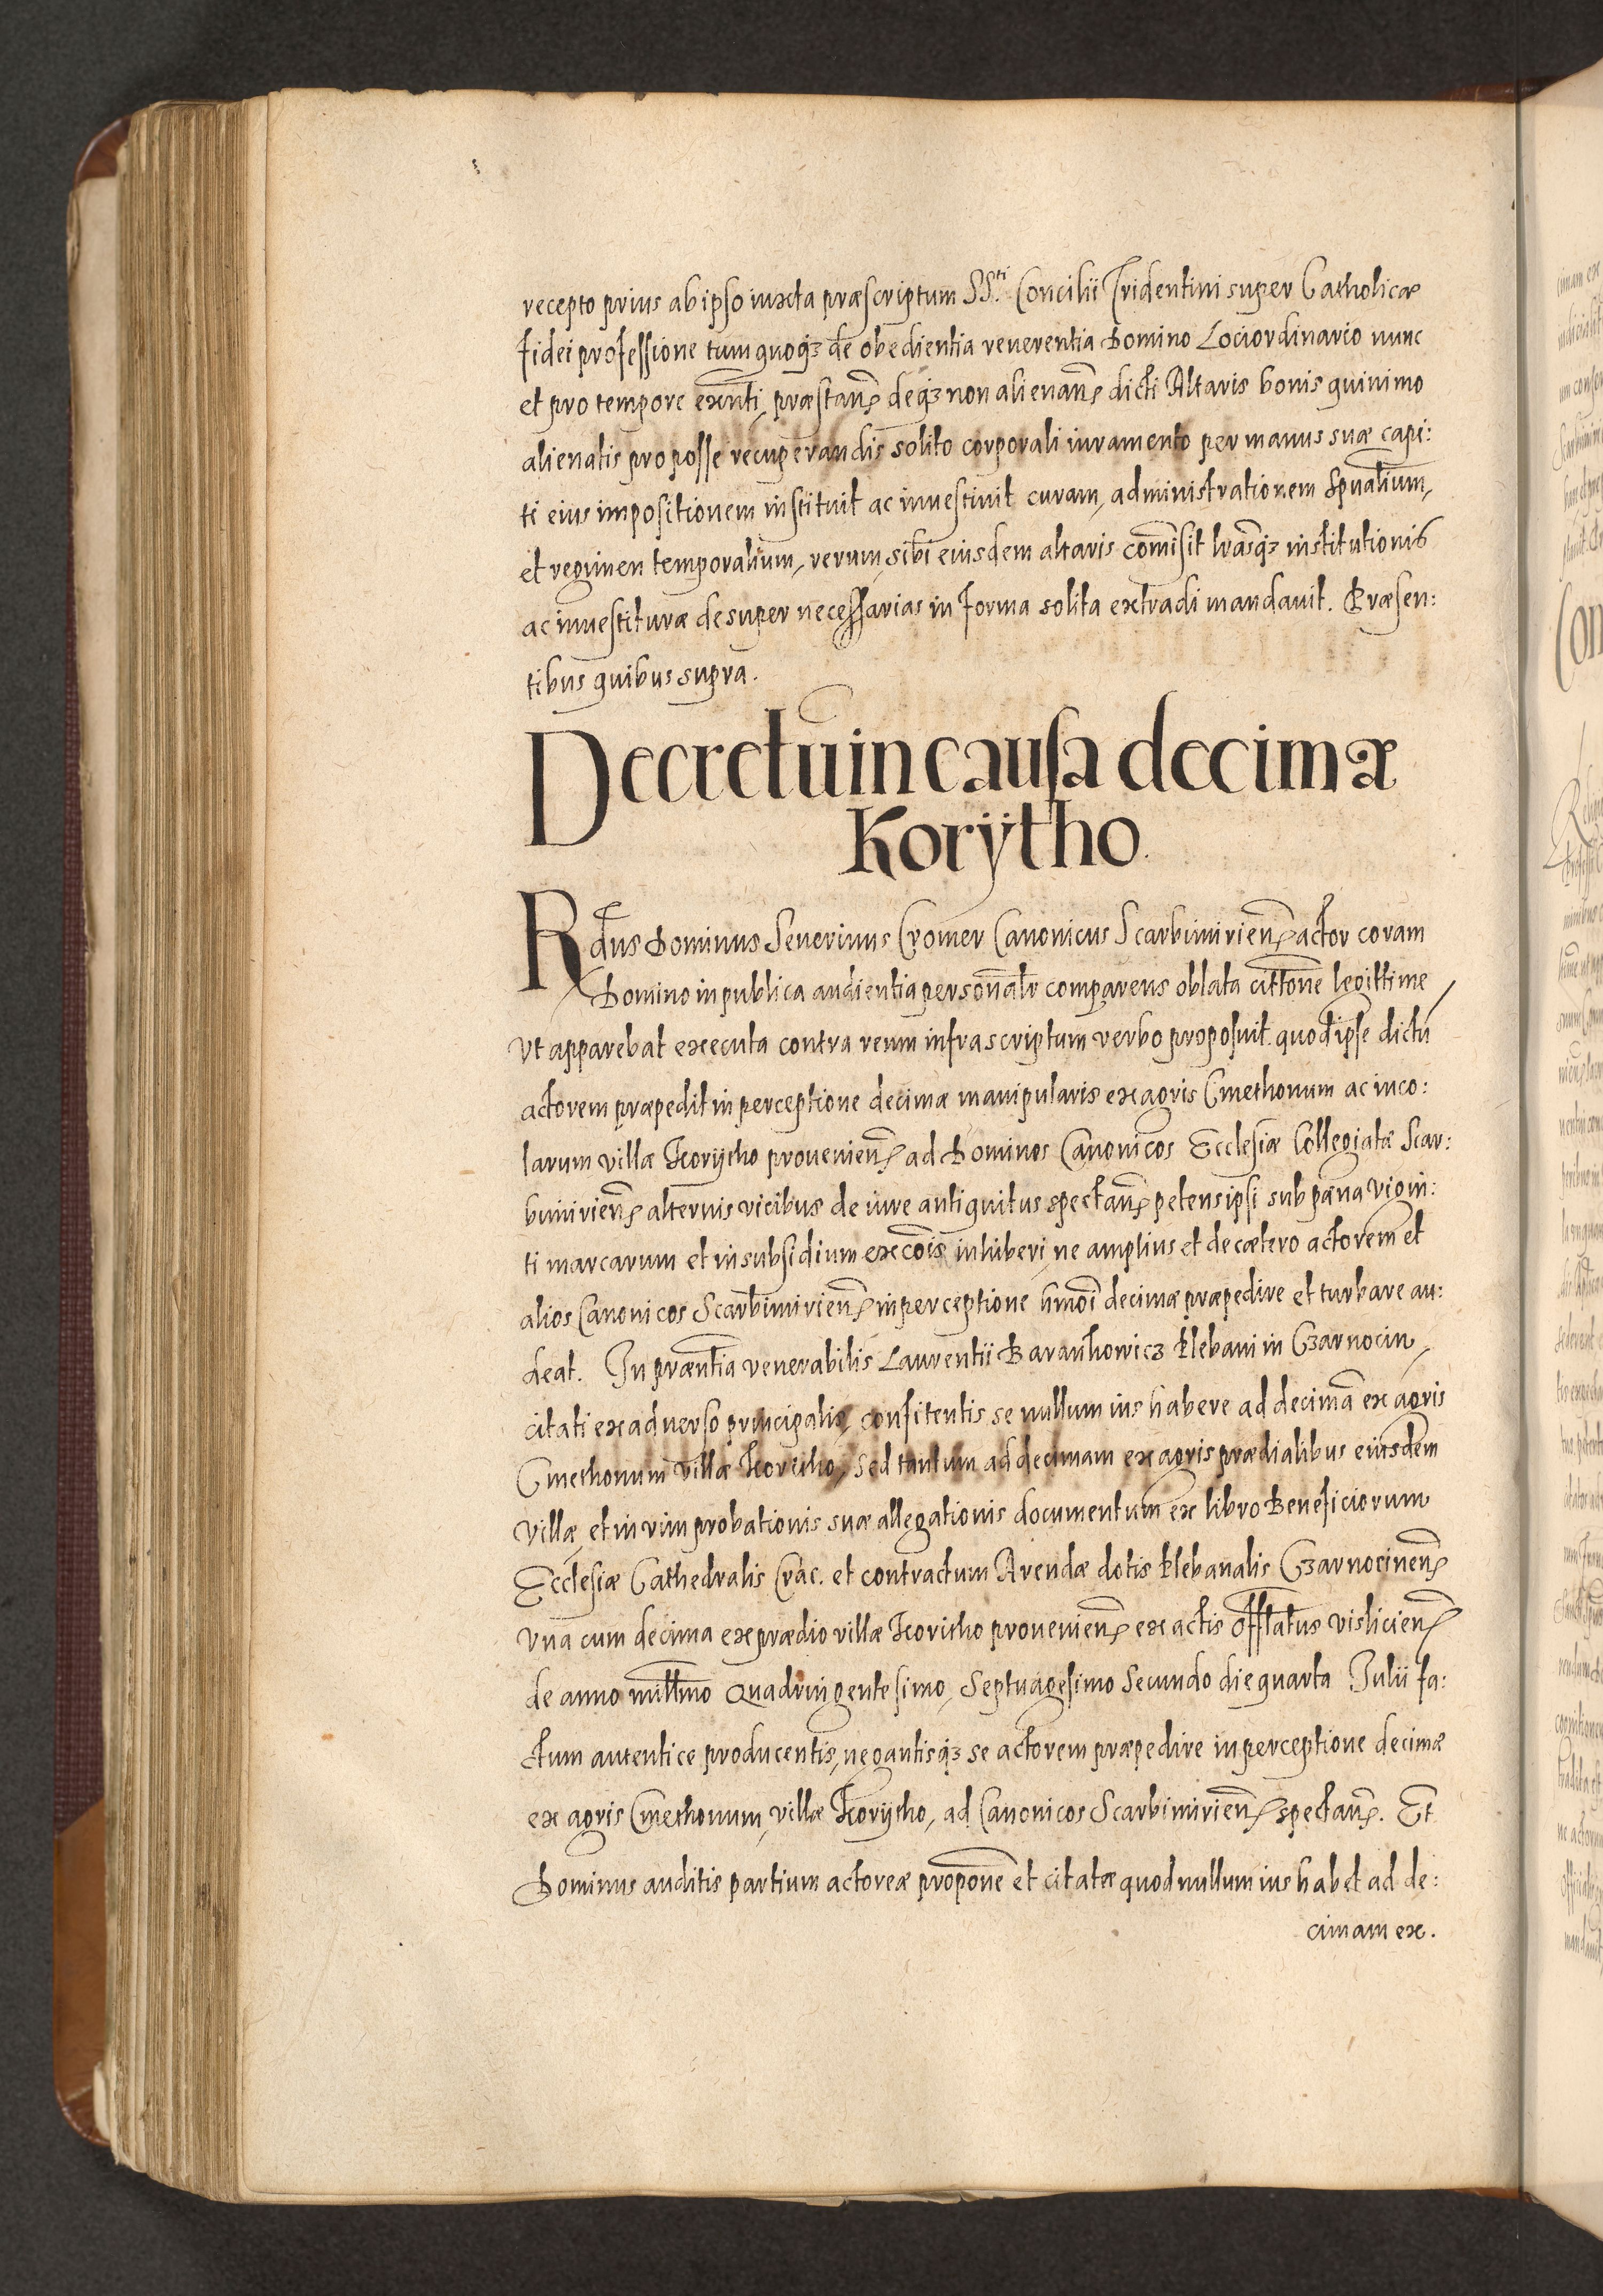 recepto prius ab ipso iuxta præscriptum SS.ti Concilii Tridentini super Catholicæ
fidei professione tum quoqꝫ de obedientia reverentia Domino Lociordinario nunc
et pro tempore exñti, præstanꝭ deqꝫ non alienanꝭ dicti Altaris bonis quinimo
alienatis pro posse recuperandis solito corporali iuramento per manus suæ capi:
ti eius impositionem instituit ac inuestiuit curam, administrationem Spũalium,
et regimen temporalium, rerum, sibi eiusdem altaris com̃isit lr̃asqꝫ institutionis
ac inuestituræ desuper necessarias in forma solita extradi mandauit. Præsen:
tibus quibus supra.
Decretu in causa decimæ
Korÿtho.
Rđus Dominus Seuerinus Cromer Canonicus Scarbimirienꝭ actor coram
Domino in publica audientia personalr̃ comparens oblata citt̃one legittime
vt apparebat executa contra reum infrascriptum verbo proposuit. quod ipse dictũ
actorem præpedit in perceptione decimæ manipularis ex agris Cmethonum ac inco:
larum villæ Korÿtho prouenienꝭ ad Dominos Canonicos Ecclesiæ Collegiatæ Scar:
bimirienꝭ alternis vicibus de iure antiquitus spectanꝭ petens ipsi sub pæna vigin:
ti marcarum et in subsidium excõis inhiberi, ne amplius et de cætero actorem et
alios Canonicos Scarbimirienꝭ in perceptione hmõi decimæ præpedire et turbare au:
deat. In præntia venerabilis Laurentii Baranhowicz Plebani in Czarnocin,
citati ex aduerso principalis, confitentis se nullum ius habere ad decimã ex agris
Cmethonum villæ Koritho, sed tantum ad decimam ex agris prædialibus eiusdem
villæ, et in vim probationis suæ allegationis documentum ex libro Beneficiorum
Ecclesiæ Cathedralis Crac. et contractum Arendæ dotis Plebanalis Czarnocinenꝭ
vna cum decima ex prædio villæ Koritho prouenienꝭ ex actis offlatus visliciensꝭ
de anno millmo Quadringentesimo, Septuagesimo Secundo die quarta Iulii fa:
ctum autentice producentis, negantisqꝫ se actorem præpedire in perceptione decimæ
ex agris Cmethonum, villæ Korÿtho, ad Canonicos Scarbimirienꝭ spectanꝭ. Et
Dominus auditis partium actoreæ propõne et citatæ quod nullum ius habet ad de:
cimam ex.